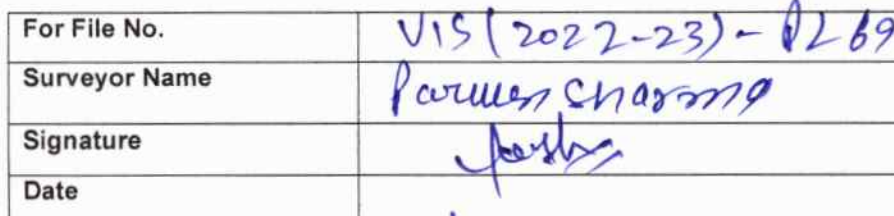 For File No. VIS(2022-23)-PL69
Surveyor Name Parveen Sharma
Signature
Date